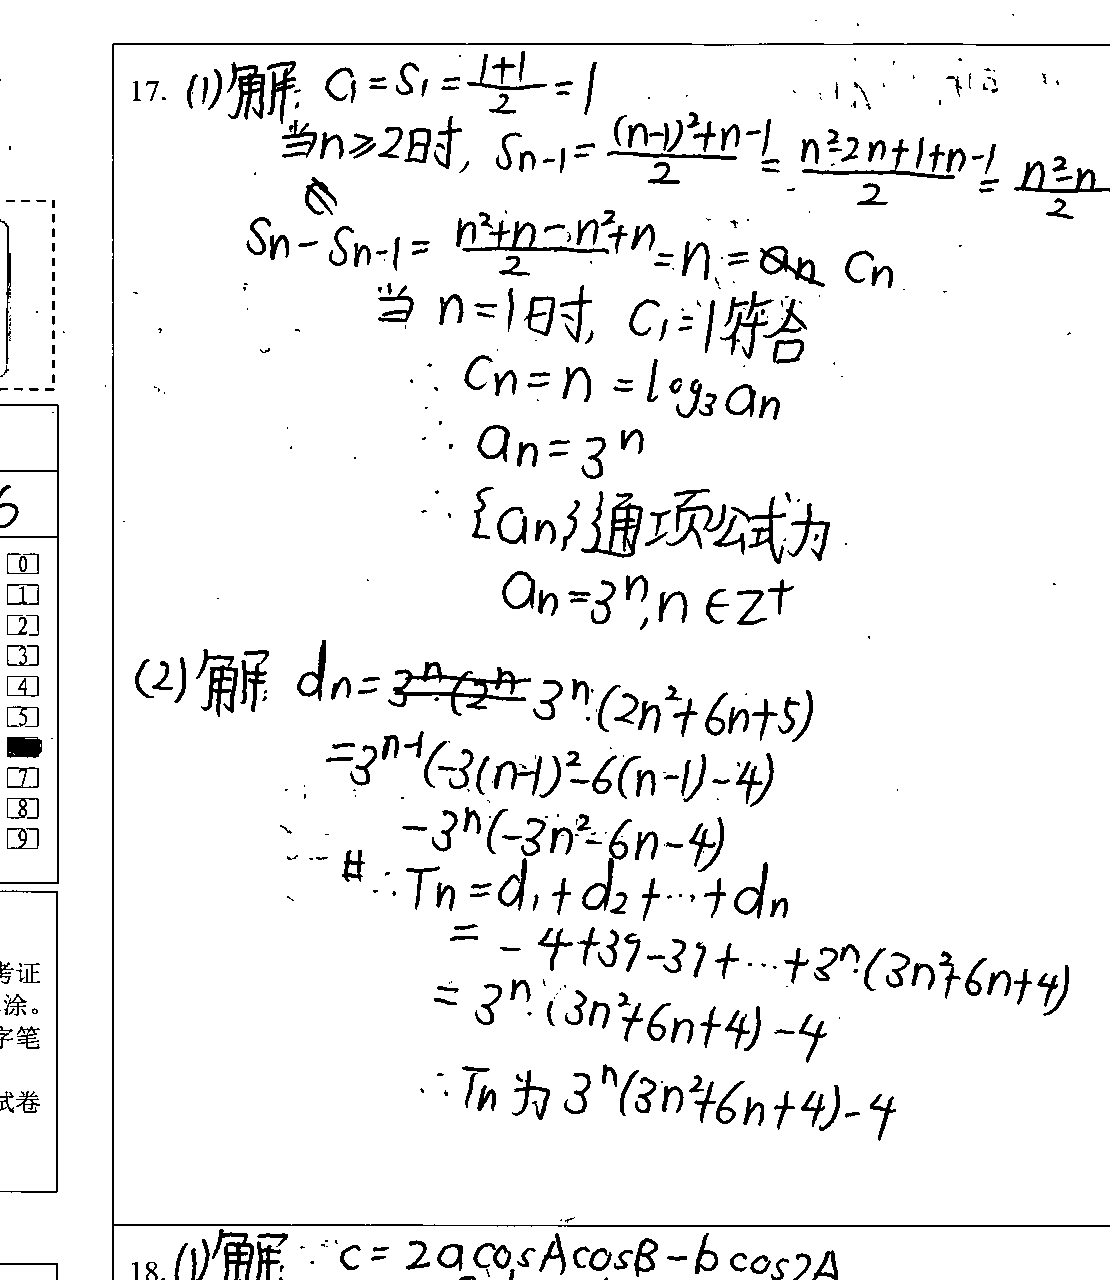 17. (1)解: C₁=S₁=(1+1)/2=1
当n≥2时, Sn-1=((n-1)²+n-1)/2=(n²-2n+1+n-1)/2=(n²-n)/2
Sn-Sn-1=(n²+n-n²+n)/2=n=an Cn
当n=1时, C₁=1符合
∴Cn=n=log₃an
∴an=3ⁿ
∴{an}通项公式为
an=3ⁿ,n∈Z⁺
(2)解: dn=3ⁿ·(2ⁿ 3ⁿ·(2n²+6n+5)
=3ⁿ⁻¹(-3(n-1)²-6(n-1)-4)
-3ⁿ(-3n²-6n-4)
∴Tn=d₁+d₂+…+dn
=-4+39-39+…+3ⁿ·(3n²+6n+4)
=3ⁿ·(3n²+6n+4)-4
∴Tn为3ⁿ(3n²+6n+4)-4
18.(1)解: ∵c=2acosAcosB-bcos2A
6
0
1
2
3
4
5
7
8
9
考证
涂。
字笔
试卷